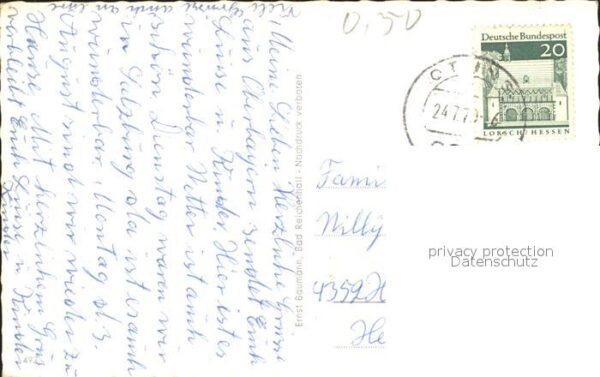 Meine Lieben Herzliche Grüsse
aus Oberbayern sendet Euch
Luise u. Kinder Hier ist es
wunderbar Wetter ist auch
schön Dienstag waren wir
in Salzburg da ist es auch
wunderbar. Montag d. 3.
August sind wir wieder zu
Hause Mit herzlichem Gruß
verbleibt Euch Luise u. Kinder
Viele Grüsse
auch an
Ernst Baumann, Bad Reichenhall - Nachdruck verboten
0,50
Deutsche Bundespost
20
LORSCH/HESSEN
24.7.70
Fami
Willy
4352 H
He
privacy protection
Datenschutz